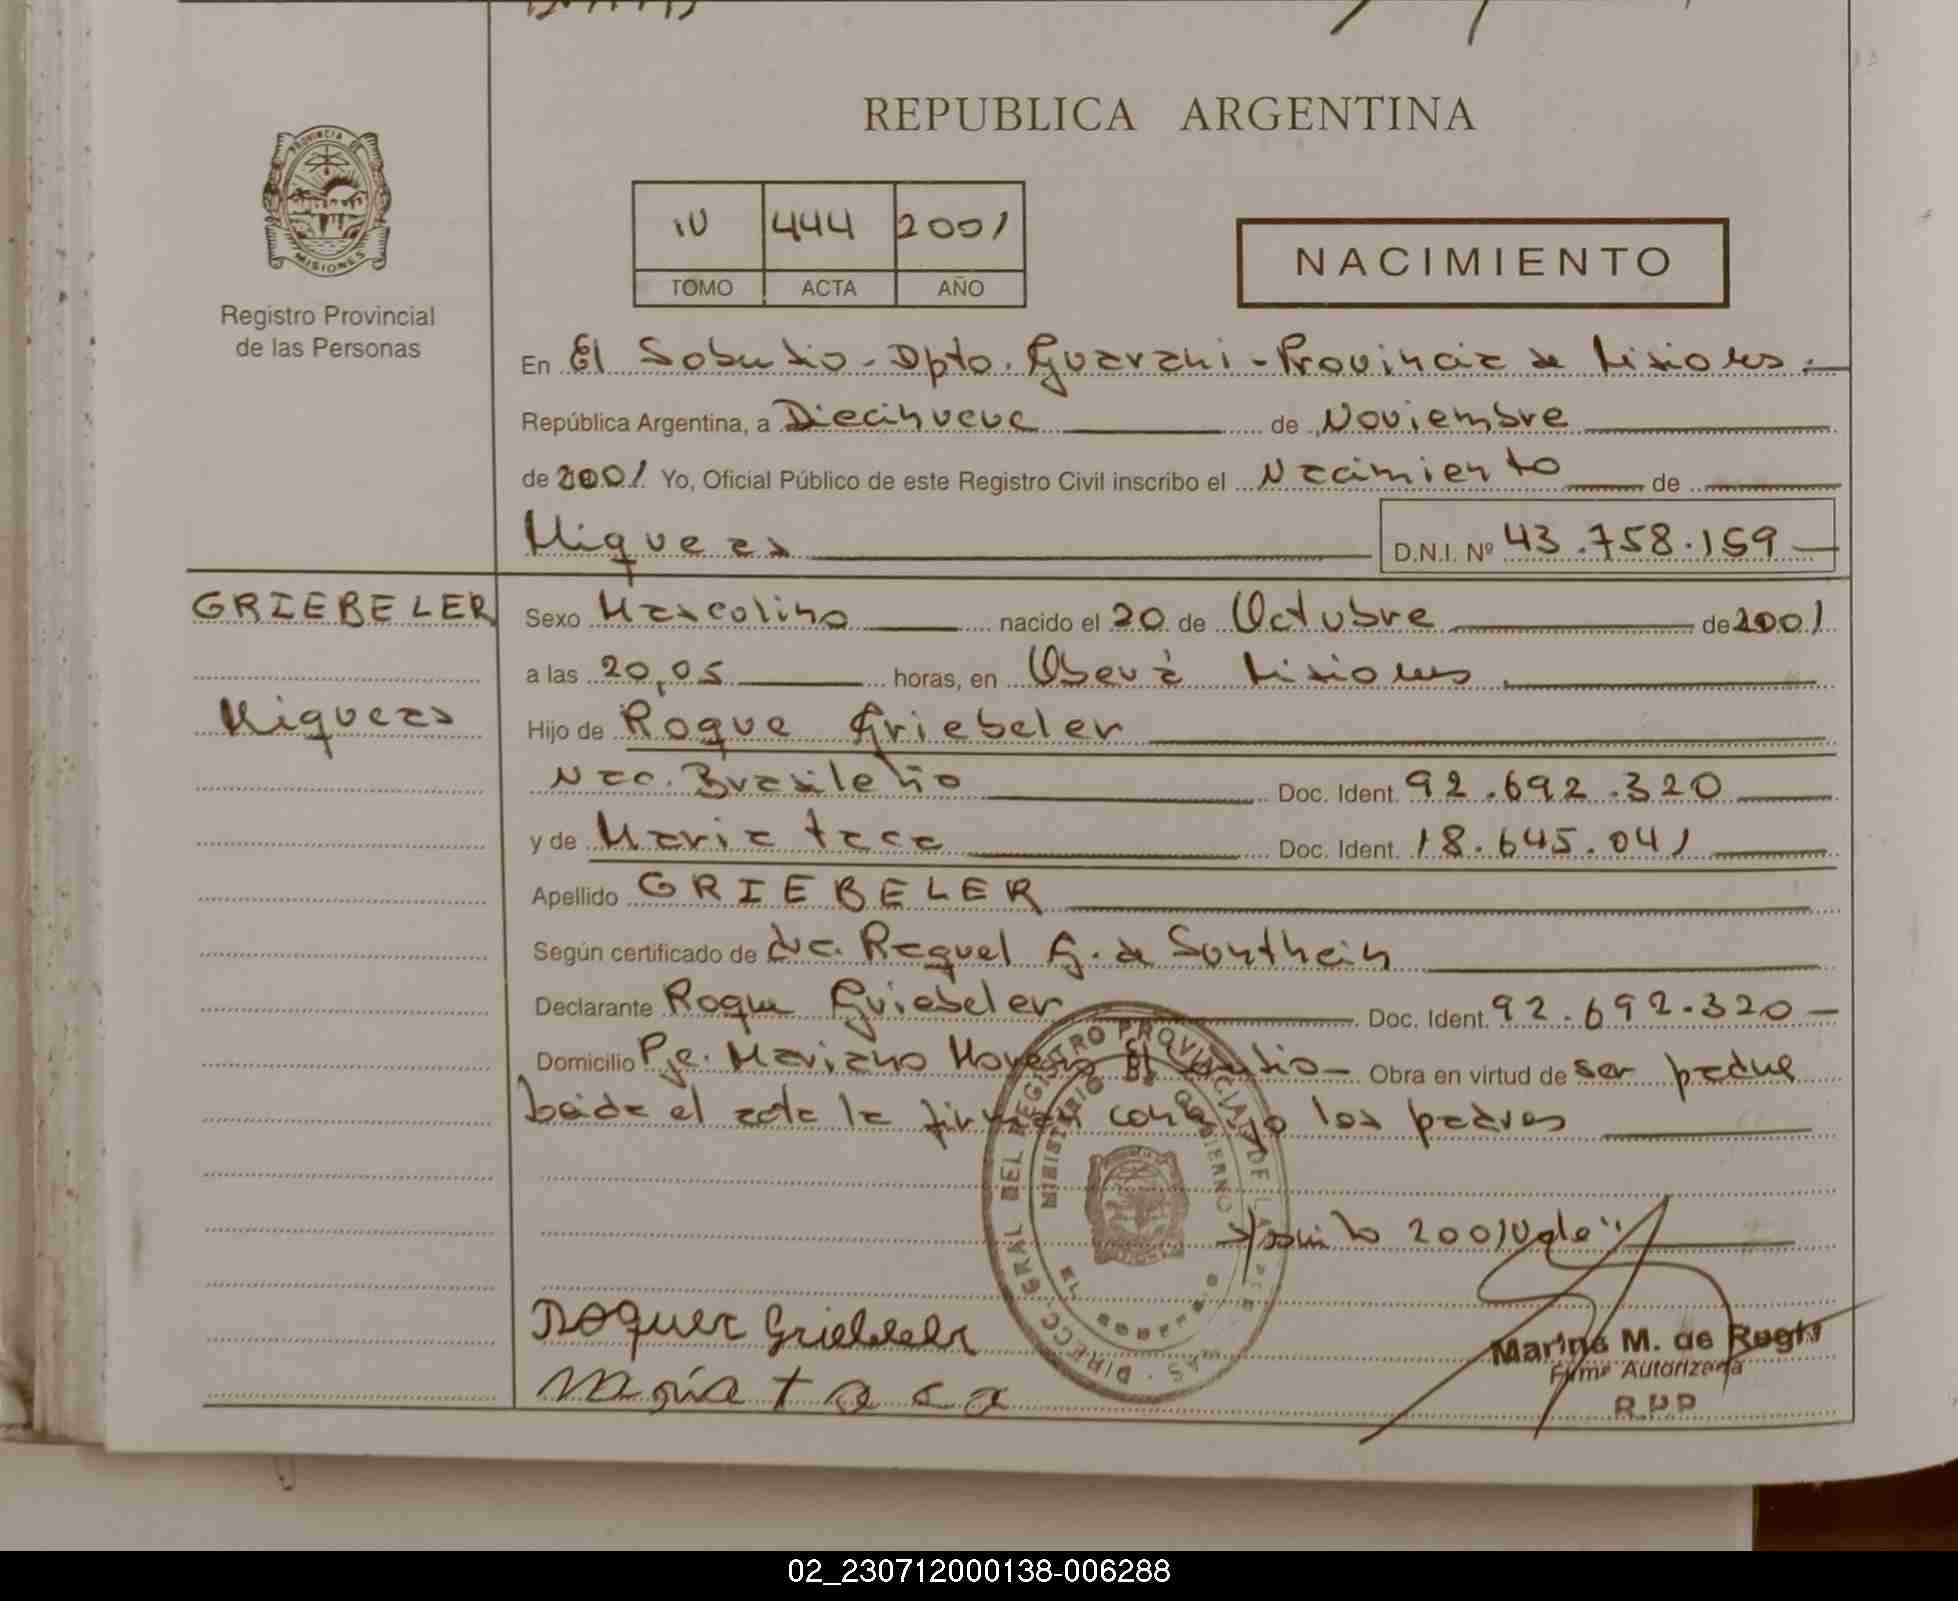 REPUBLICA ARGENTINA
PROVINCIA DE
MISIONES
Registro Provincial
de las Personas
IV 444 2001
TOMO ACTA AÑO
NACIMIENTO
En El Soberbio - Dpto. Guarani - Provincia de Misiones.
República Argentina, a Diecinueve de Noviembre
de 2001 Yo, Oficial Público de este Registro Civil inscribo el Nacimiento de
Miqueas D.N.I. Nº 43.758.159
GRIEBELER
Miqueas
Sexo Masculino nacido el 20 de Octubre de 2001
a las 20,05 horas, en Oberá Misiones
Hijo de Roque Griebeler
Nac. Brasileño Doc. Ident. 92.692.320
y de Maria taca Doc. Ident. 18.645.041
Apellido GRIEBELER
Según certificado de Raquel G. de
Declarante Roque Griebeler Doc. Ident. 92.692.320
Domicilio Pje. Mariano Moreno El Soberbio - Obra en virtud de ser padre
leida el acta la firman conmigo los padres
DIRECC. GRAL. DEL REGISTRO PROVINCIAL DE LAS
MINISTERIO DE GOBIERNO
2001 Vale"
Roque Griebeler
María taca
Marina M. de
Firma Autorizada
R.P.P
02_230712000138-006288